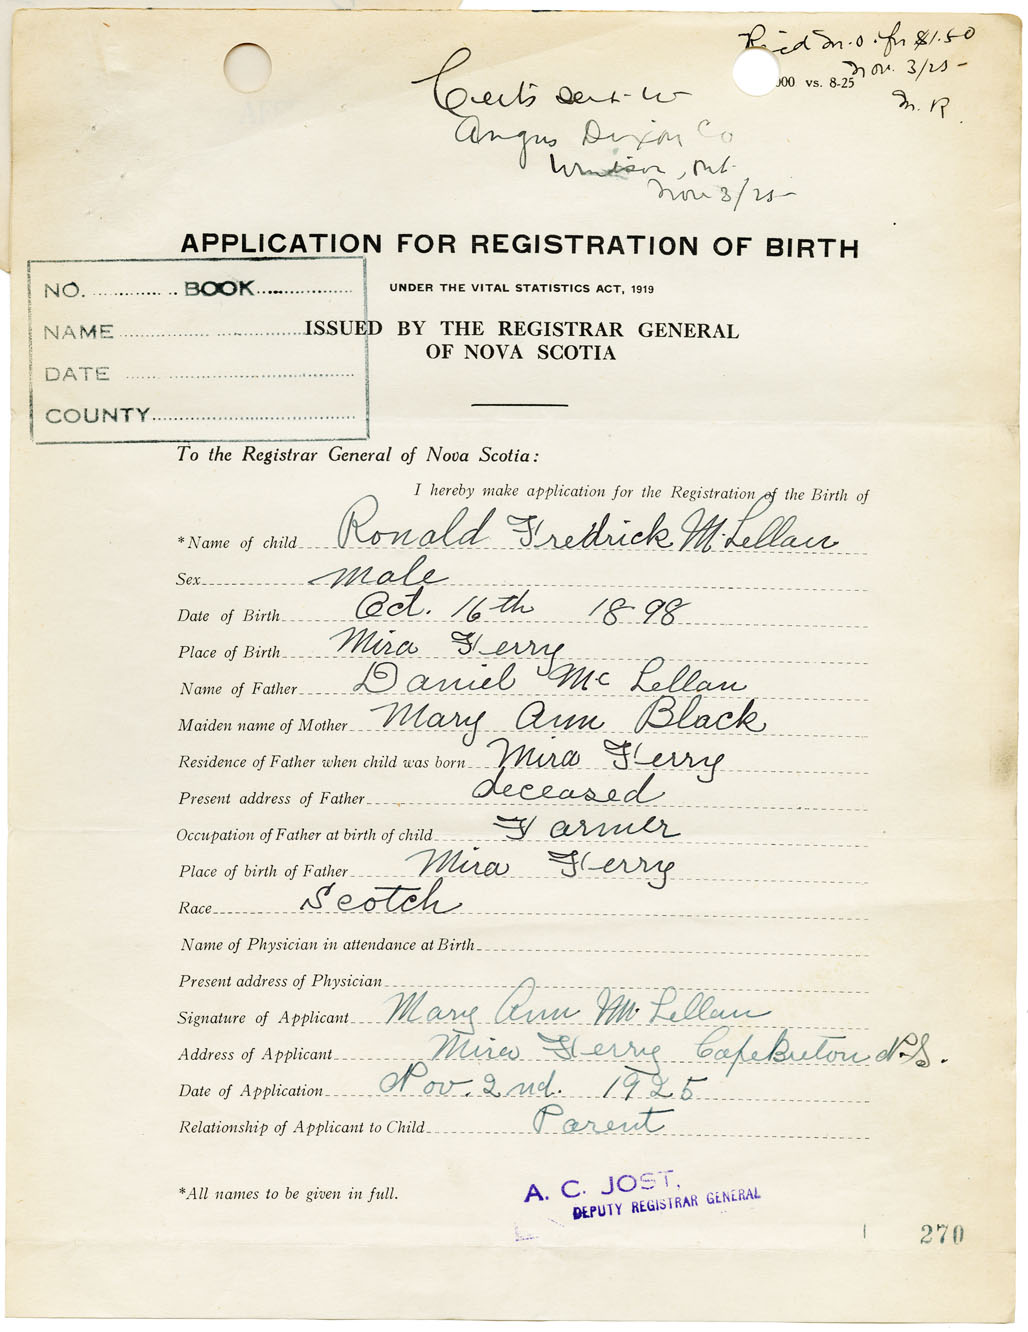 Rec'd M.O. for $1.50
Nov. 3/25 -
000 vs. 8-25
M. R.
Certs sent to
Angus Dixon Co
Windsor, Ont.
Nov 3/25 -
APPLICATION FOR REGISTRATION OF BIRTH
UNDER THE VITAL STATISTICS ACT, 1919
ISSUED BY THE REGISTRAR GENERAL
OF NOVA SCOTIA
NO. BOOK
NAME
DATE
COUNTY
To the Registrar General of Nova Scotia:
I hereby make application for the Registration of the Birth of
*Name of child Ronald Fredrick McLellan
Sex male
Date of Birth Oct. 16th 1898
Place of Birth Mira Ferry
Name of Father Daniel Mc Lellan
Maiden name of Mother Mary Ann Black
Residence of Father when child was born Mira Ferry
Present address of Father deceased
Occupation of Father at birth of child Farmer
Place of birth of Father Mira Ferry
Race Scotch
Name of Physician in attendance at Birth
Present address of Physician
Signature of Applicant Mary Ann McLellan
Address of Applicant Mira Ferry Cape Breton N.S.
Date of Application Nov. 2nd. 1925
Relationship of Applicant to Child Parent
*All names to be given in full.
A. C. JOST,
DEPUTY REGISTRAR GENERAL
270